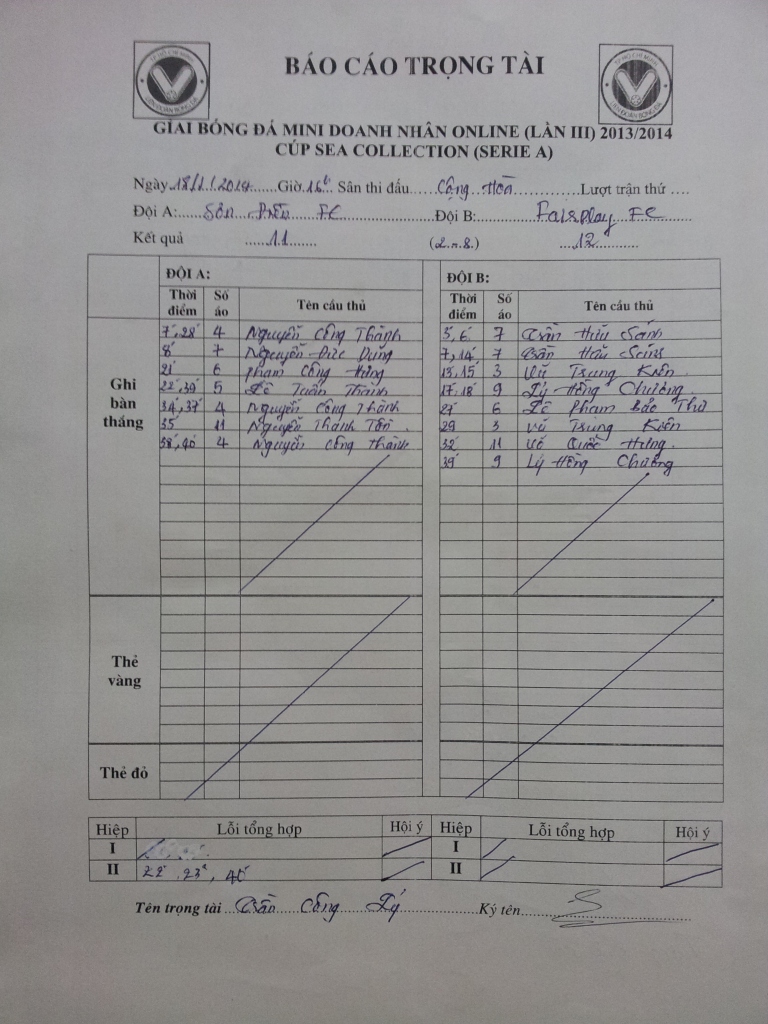 BÁO CÁO TRỌNG TÀI
TP HỒ CHÍ MINH
LIÊN ĐOÀN BÓNG ĐÁ
GIẢI BÓNG ĐÁ MINI DOANH NHÂN ONLINE (LẦN III) 2013/2014
CÚP SEA COLLECTION (SERIE A)
Ngày 18/1/2014 Giờ 16h Sân thi đấu Cộng Hòa Lượt trận thứ ....
Đội A: FC Đội B: Fairplay FC
Kết quả 11 (2-8) 12
ĐỘI A: ĐỘI B:
Thời điểm Số áo Tên cầu thủ Thời điểm Số áo Tên cầu thủ
Ghi bàn thắng
7', 28' 4 Nguyễn Công Thành 5, 6' 7 Trần Hữu
8' 7 Nguyễn Đức Dũng 7, 14' 7 Trần Hữu
21' 6 Phạm Công Hưng 13, 15' 3 Vũ Trung Kiên
22', 39' 5 Lê Tuấn Thành 17, 18' 9 Lý Hồng Chương
34', 37' 4 Nguyễn Công Thành 27' 6 Lê Phạm Bảo Thư
35' 11 Nguyễn Thành Tôn 29' 3 Vũ Trung Kiên
38', 40' 4 Nguyễn Công Thành 32' 11 Võ Quốc Hưng
39' 9 Lý Hồng Chương
Thẻ vàng
Thẻ đỏ
Hiệp Lỗi tổng hợp Hội ý Hiệp Lỗi tổng hợp Hội ý
I I
II 22' 23', 40' II
Tên trọng tài Trần Công Lý Ký tên